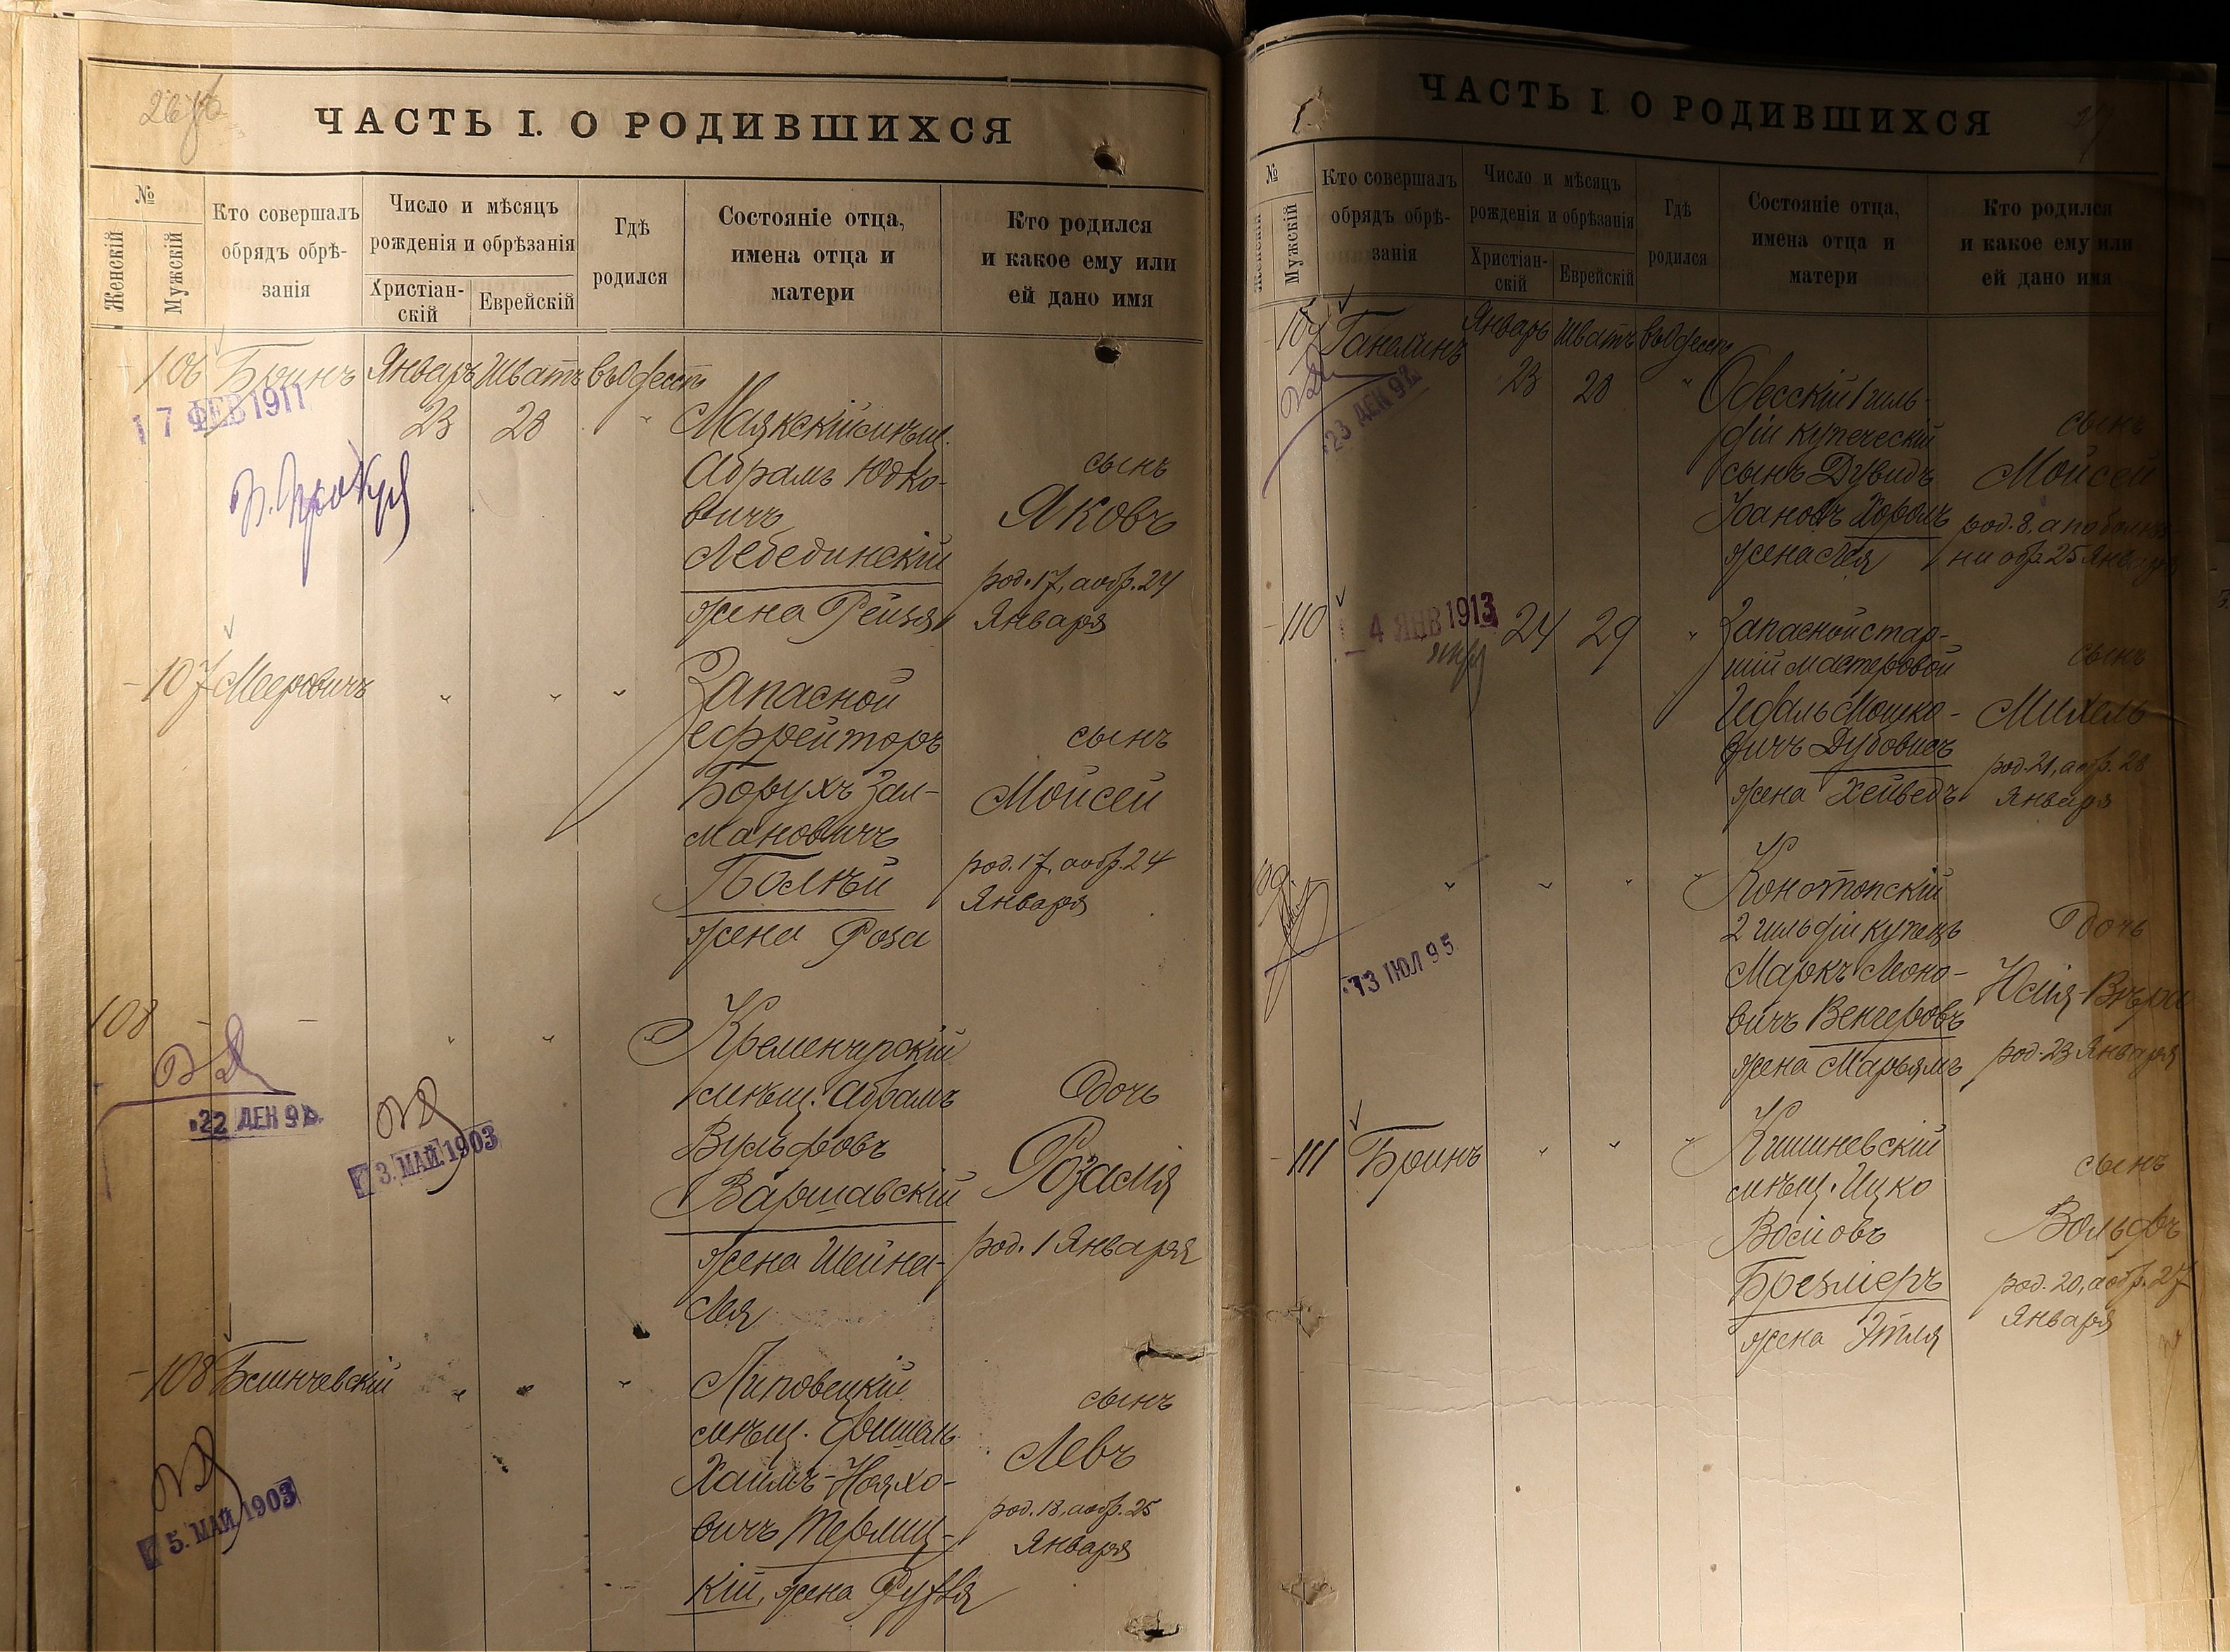 ЧАСТЬ I. О РОДИВШИХСЯ
№
Женскій
Мужскій
Кто совершалъ
обрядъ обрѣ-
занія
Число и мѣсяцъ
рожденія и обрѣзанія
Христіан-
скій
Еврейскій
Гдѣ
родился
Состояніе отца,
имена отца и
матери
Кто родился
и какое ему или
ей дано имя
106 Бринъ Январь Шватъ въ Одессѣ
17 ФЕВ 1911
23 28 "
Маякскій мѣщ.
Абрамъ Юдко-
вичъ
Лебединскій
жена Рейзя
сынъ
Яковъ
род. 17, а обр. 24
Января
107 Меровичъ " " "
Запасной
ефрейторъ
Борухъ Зал-
мановичъ
жена Роза
сынъ
Мойсей
род. 17, а обр. 24
Января
108 - - " " "
22 ДЕН 9
3. МАЙ 1903
Кременчугскій
мѣщ. Абрамъ
Вульфовъ
Варшавскій
жена Шейна-
Лея
дочь
Розалія
род. 1 Января
108 " " "
5. МАЙ 1903
Липовецкій
мѣщ. Фишель
Хаимъ-Нояхо-
вичъ Терлиц-
кій, жена Рухля
сынъ
Левъ
род. 18, а обр. 25
Января
ЧАСТЬ I. О РОДИВШИХСЯ
27
№
Женскій
Мужскій
Кто совершалъ
обрядъ обрѣ-
занія
Число и мѣсяцъ
рожденія и обрѣзанія
Христіан-
скій
Еврейскій
Гдѣ
родился
Состояніе отца,
имена отца и
матери
Кто родился
и какое ему или
ей дано имя
Ганелинъ Январь Шватъ въ Одессѣ
23 ДЕН 92
23 28 "
Одесскій 1 гиль-
діи купеческій
сынъ Дувидъ
жена Лея
сынъ
Мойсей
род. 8, а по болѣз-
ни обр. 25 Января
110 24 29 "
4 ЯНВ 1913
Запасной стар-
шій мастеровой
Мошко-
вичъ Дубовисъ
жена Хейведъ
сынъ
Михель
род. 21, а обр. 28
Января
109 " " " "
13 ІЮЛ 95
Конотопскій
2 гильдіи купецъ
Маркъ Леоно-
вичъ Венгеровъ
жена Марьямъ
дочь
Юлія-Вѣра
род. 23 Января
111 Бринъ " " "
Кишиневскій
мѣщ. Ицко
жена Этля
сынъ
Вольфъ
род. 20, а обр. 27
Января